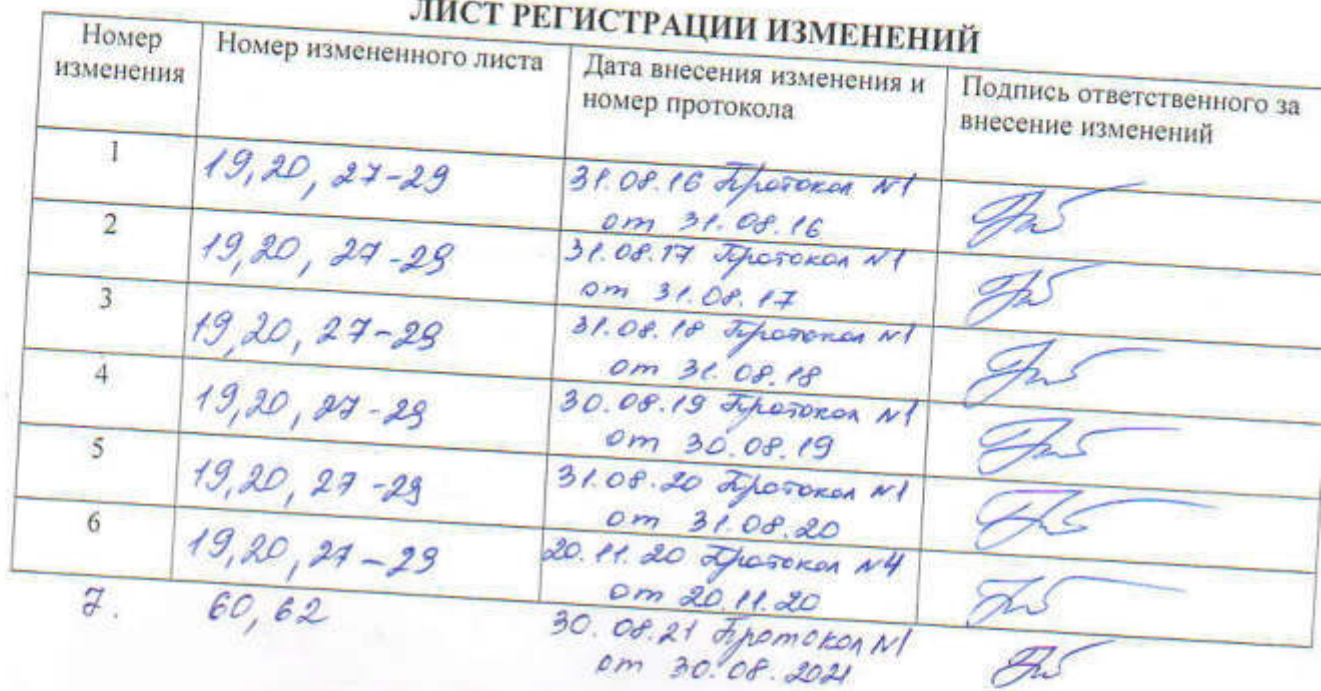 ЛИСТ РЕГИСТРАЦИИ ИЗМЕНЕНИЙ
Номер изменения
Номер измененного листа
Дата внесения изменения и номер протокола
Подпись ответственного за внесение изменений
1
19,20, 27-29
31.08.16 Протокол №1
от 31.08.16
2
19,20, 27-29
31.08.17 Протокол №1
от 31.08.17
3
19,20, 27-29
31.08.18 Протокол №1
от 31.08.18
4
19,20, 27-29
30.08.19 Протокол №1
от 30.08.19
5
19,20, 27-29
31.08.20 Протокол №1
от 31.08.20
6
19,20, 27-29
20.11.20 Протокол №4
от 20.11.20
7.
60, 62
30.08.21 Протокол №1
от 30.08.2021